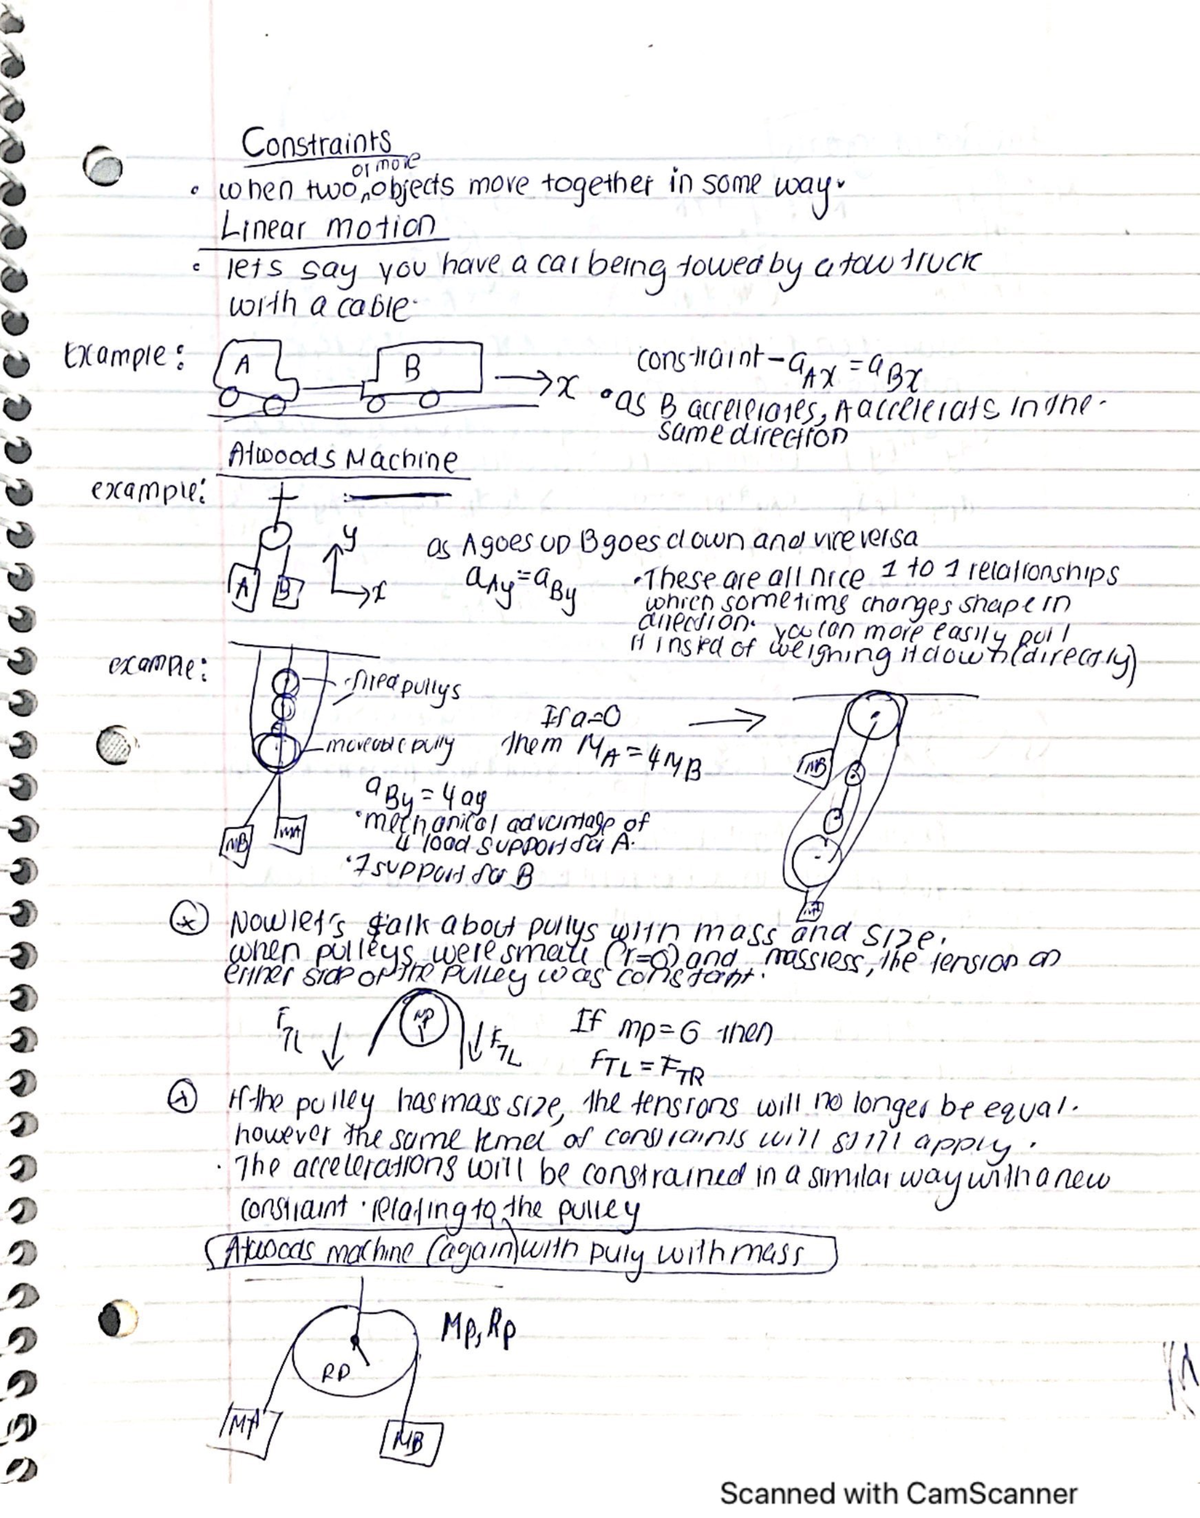 Constraints
• when two or more objects move together in some way.
Linear motion
• lets say you have a car being towed by a tow truck
with a cable.
Example:
A
B
x
constraint - aAx = aBx
• as B accelerates, A accelerats in the
same direction
Atwoods Machine
example:
A
B
y
x
as A goes up B goes down and vice versa
aAy = aBy
• These are all nice 1 to 1 relationships
which sometims changes shape in
direction. you can more easily pull
it insted of weighing it down (directly)
example:
fixed pullys
moveable pully
MB
MA
If a=0
them MA = 4MB
MB
MA
aBy = 4ay
• mechanical advantage of
4 load support for A.
• 1 support for B
Now let's talk about pullys with mass and size.
when pulleys were small (r=0) and massless, the tension on
either side of the pulley was constant.
FTL
mp
FTL
If mp = 0 then
FTL = FTR
If the pulley has mass size, the tensions will no longer be equal.
however the same kind of constraints will still apply.
• The accelerations will be constrained in a similar way with a new
constraint relating to the pulley
Atwoods machine (again) with pully with mass
Mp, Rp
RP
MA
MB
Scanned with CamScanner